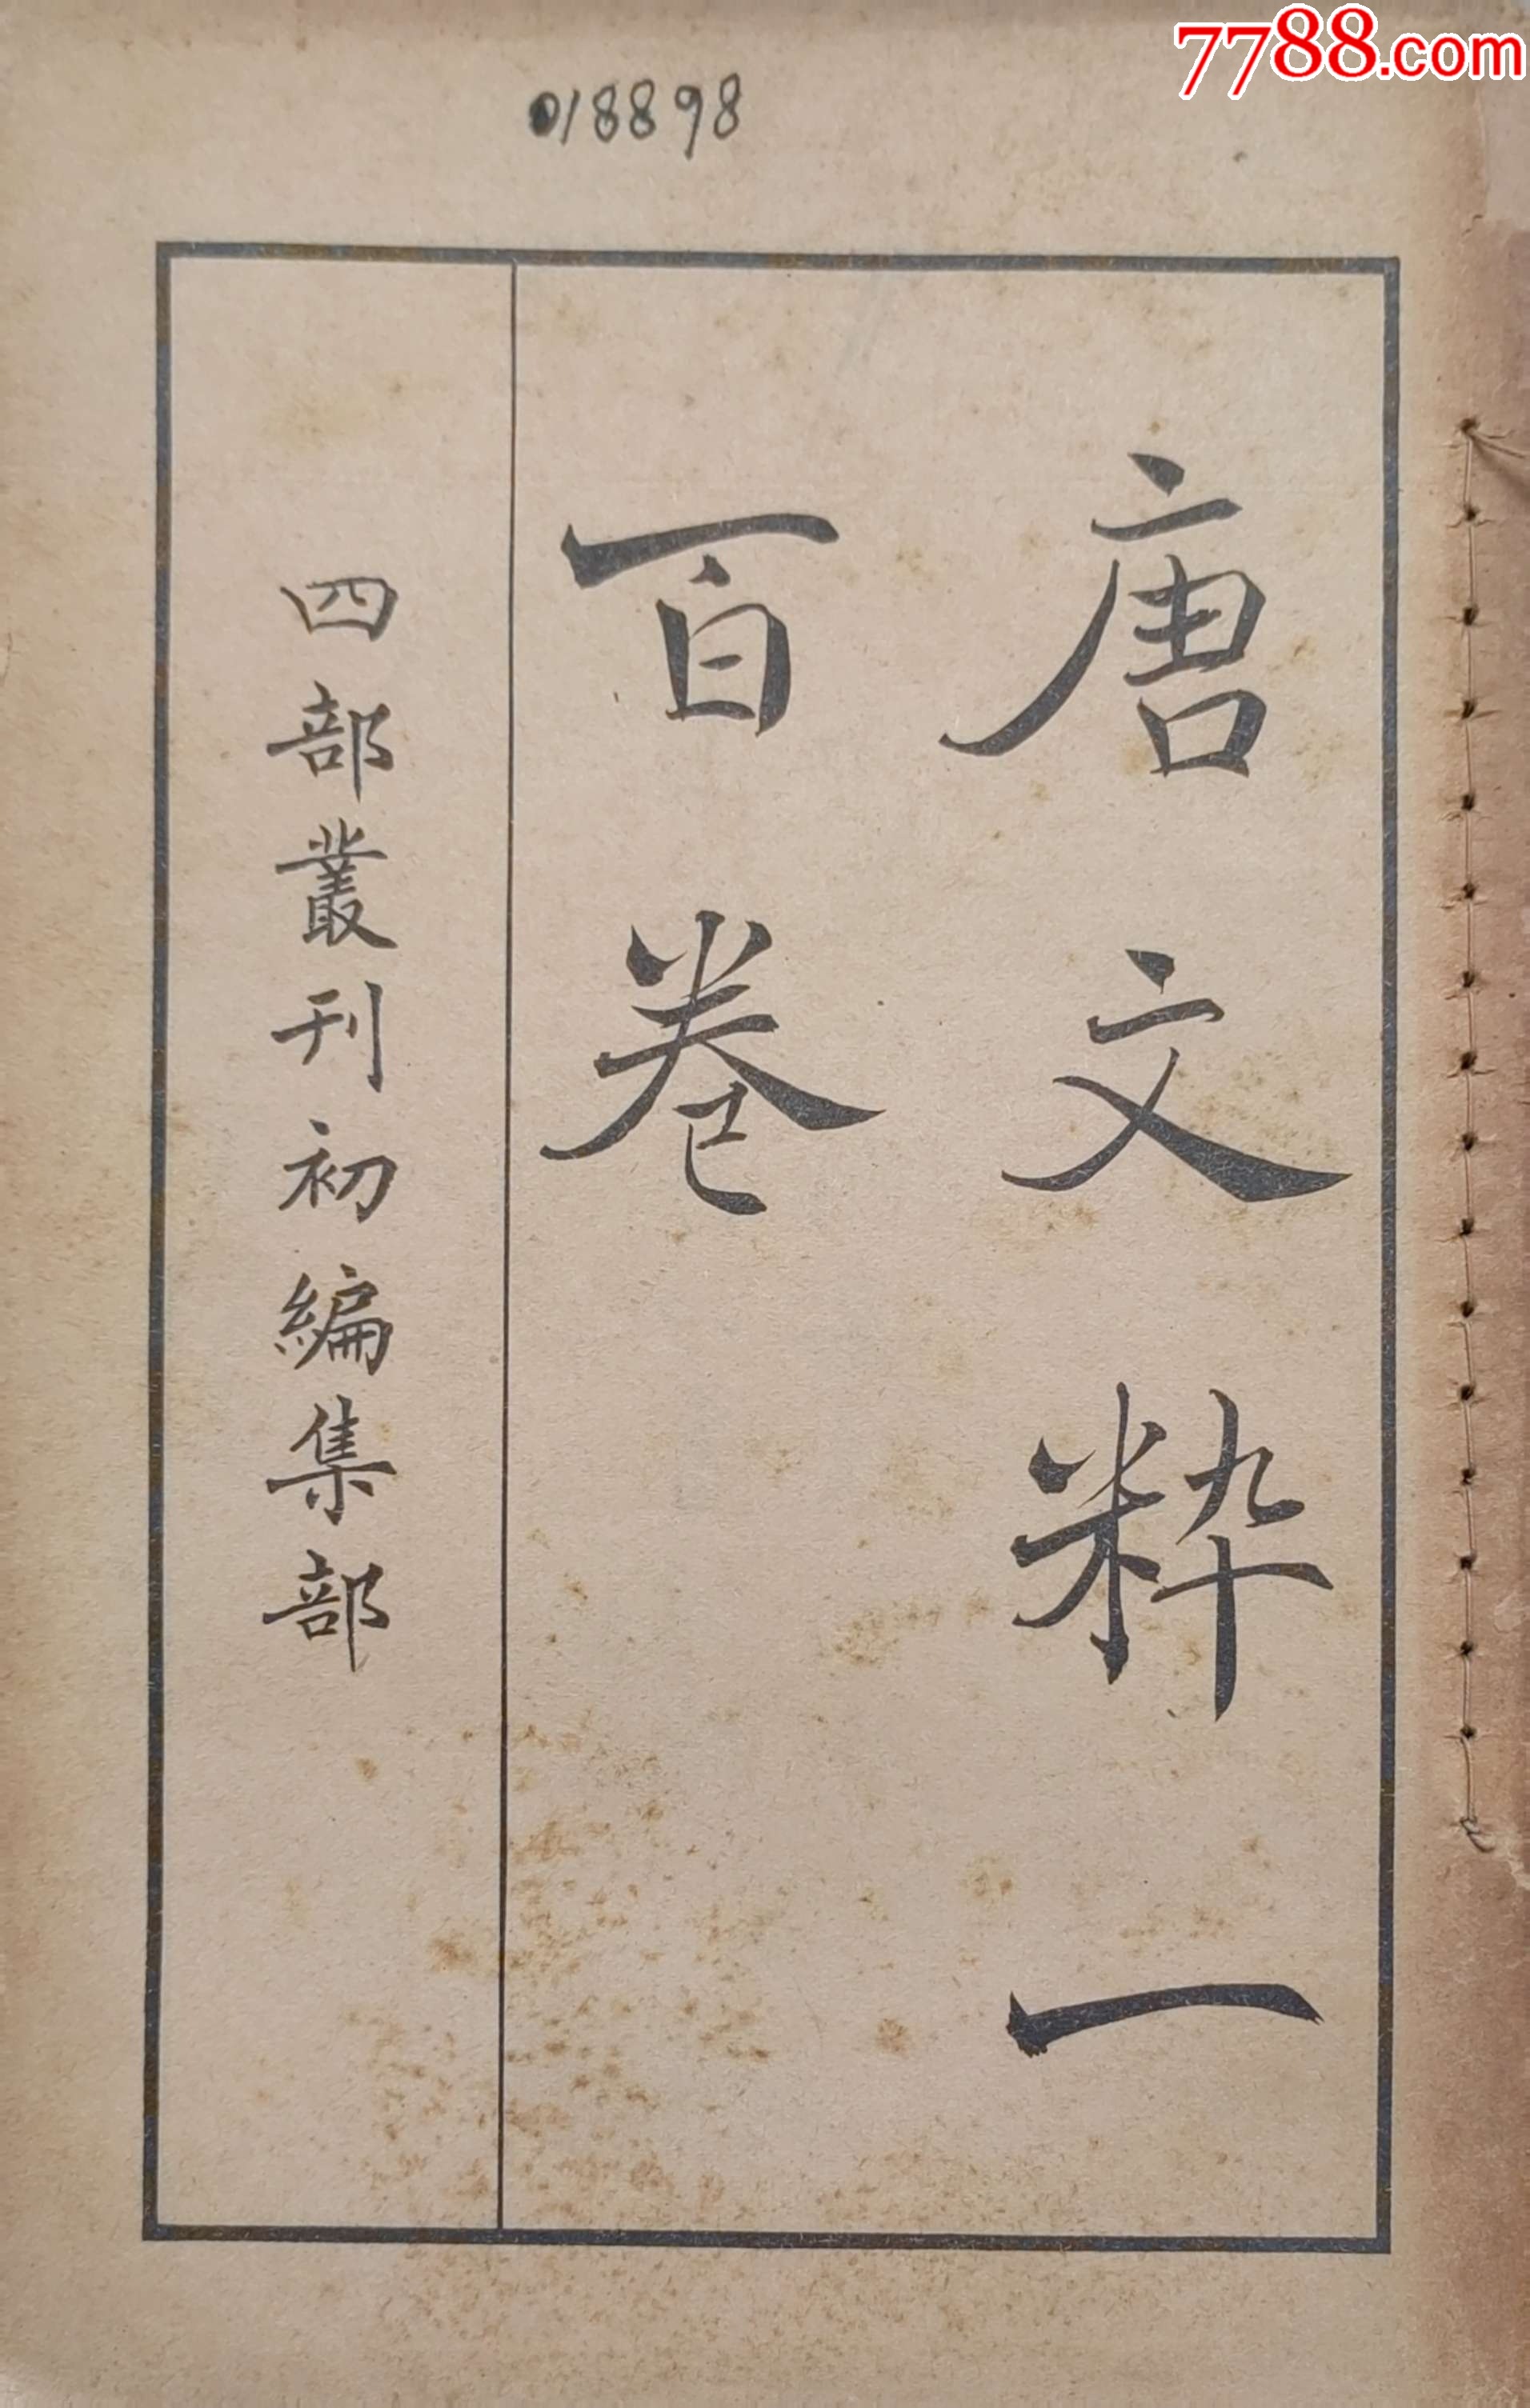 7788.com
018898
唐文粋一
百卷
四部叢刊初編集部